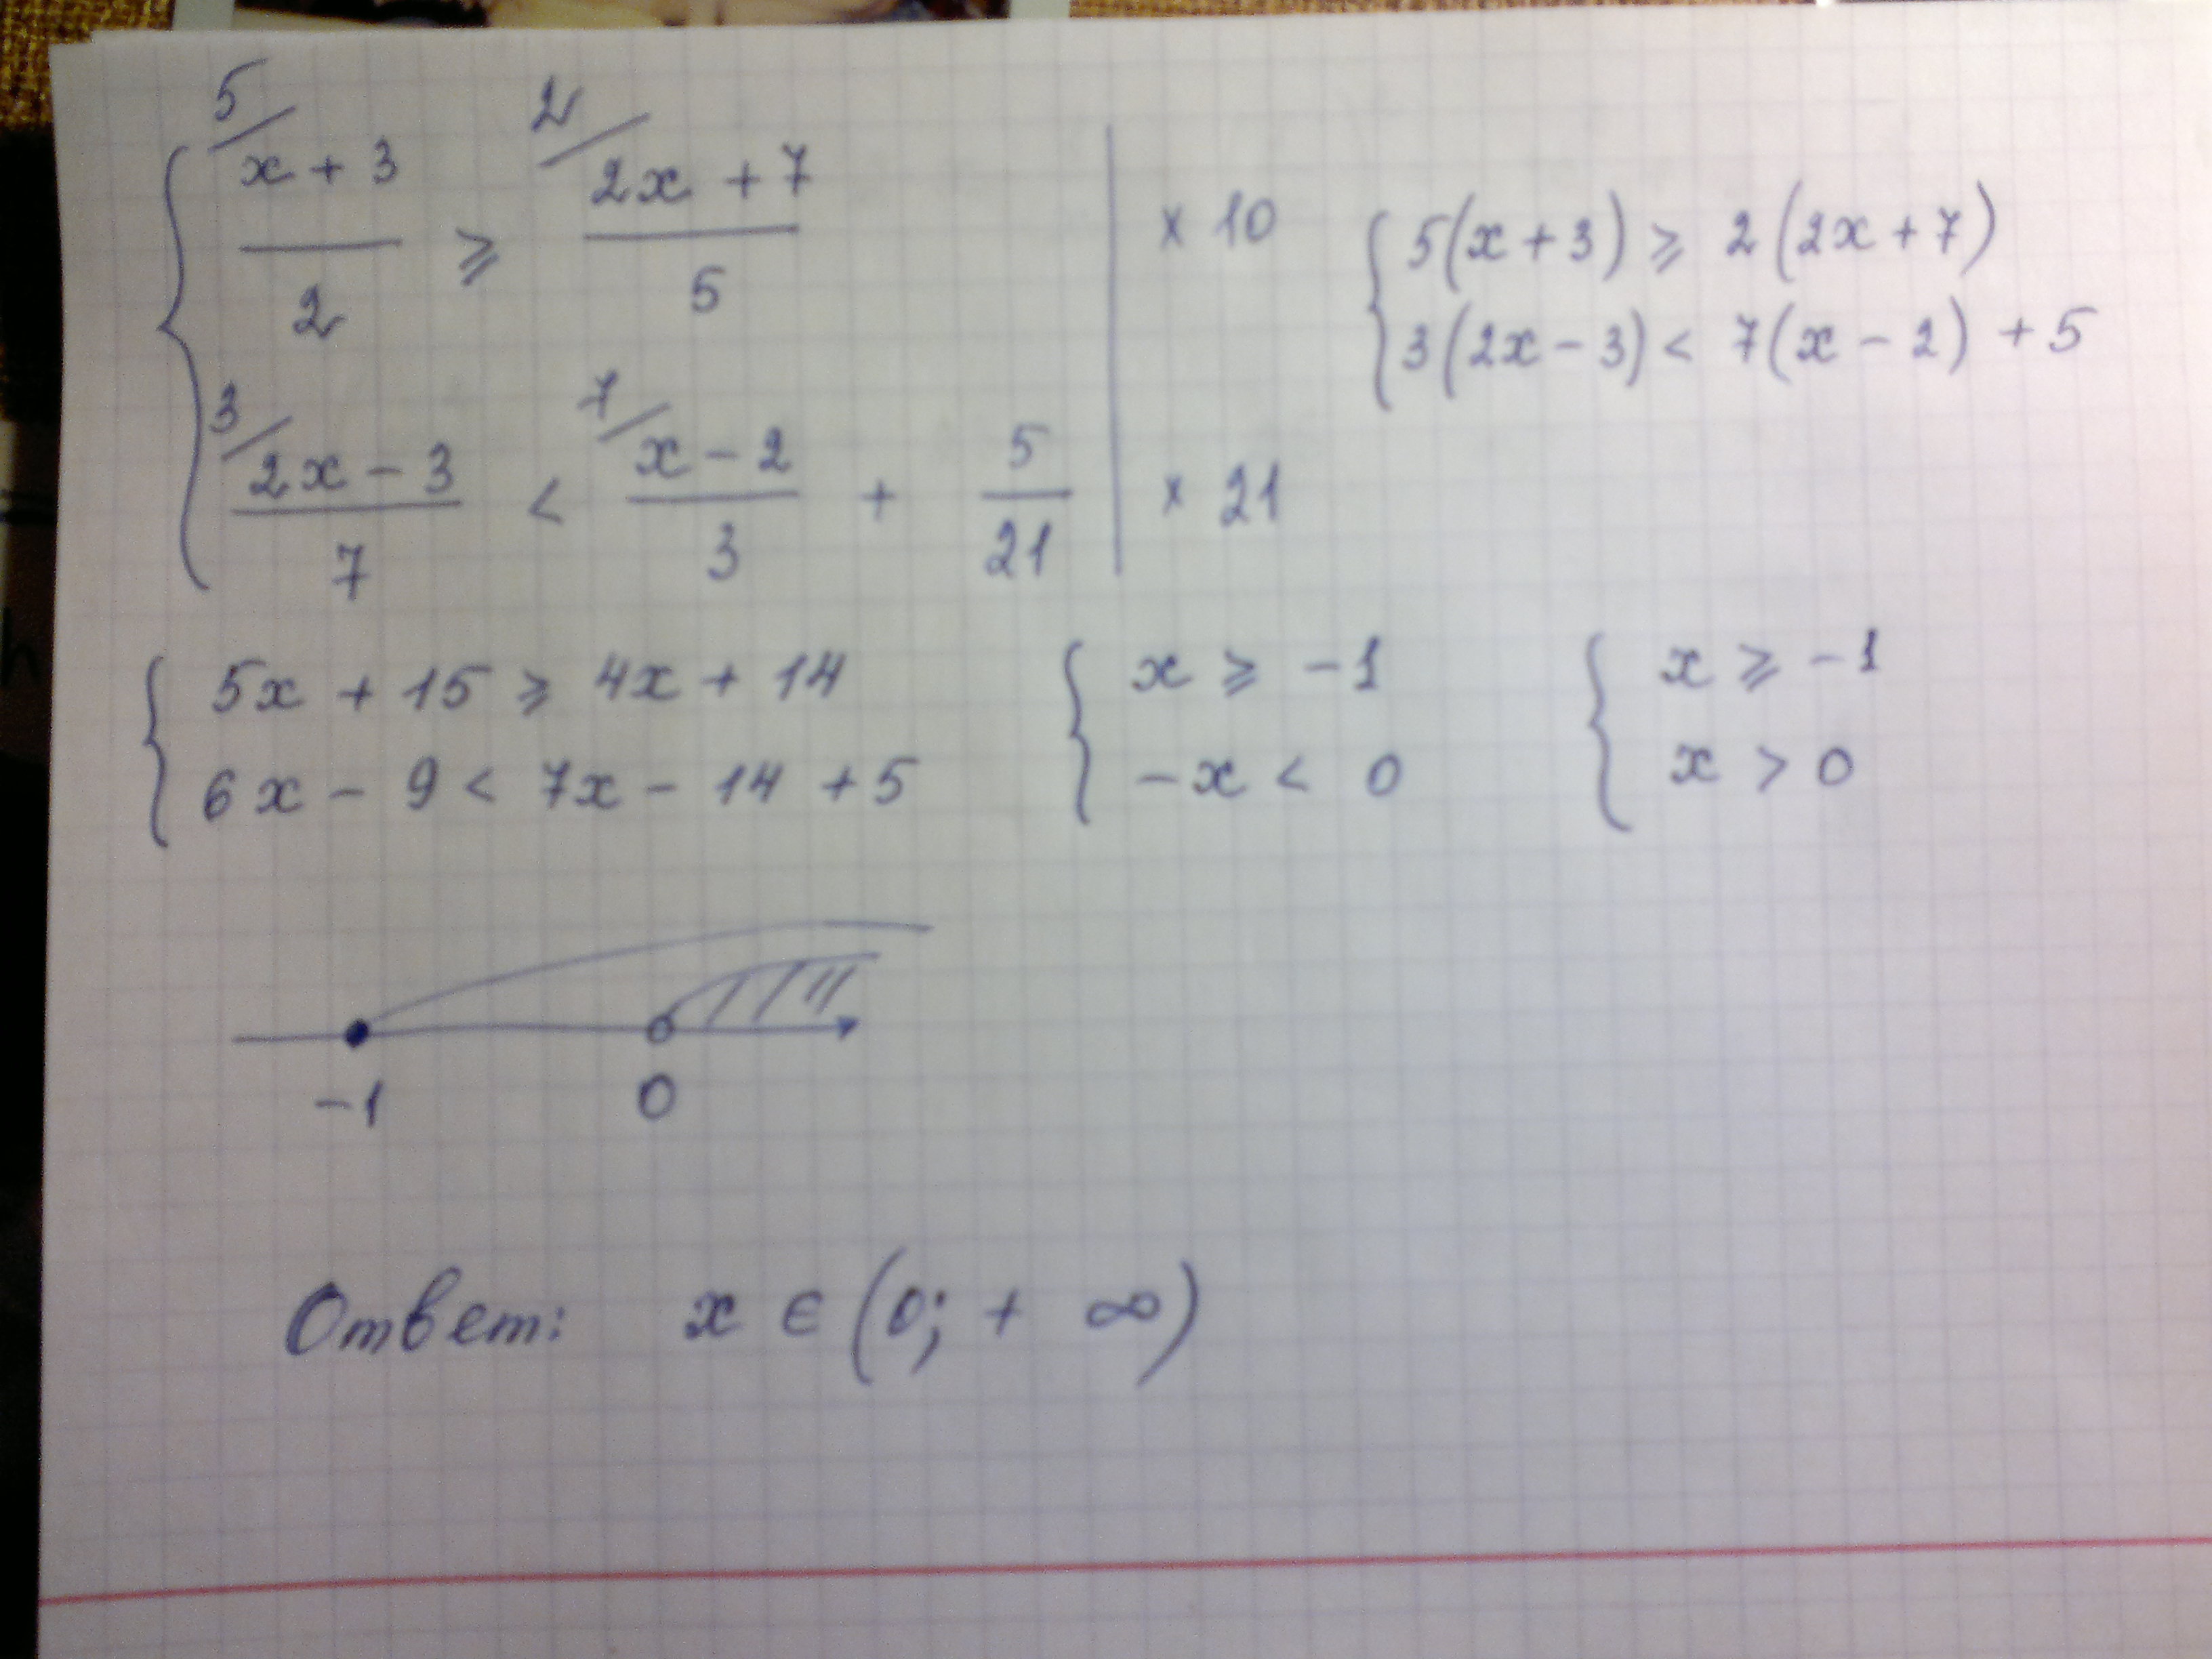 { 5/ (x + 3)/2 ⩾ 2/ (2x + 7)/5 | × 10
3/ (2x − 3)/7 < 7/ (x − 2)/3 + 5/21 | × 21
{ 5(x + 3) ⩾ 2(2x + 7)
3(2x − 3) < 7(x − 2) + 5
{ 5x + 15 ⩾ 4x + 14
6x − 9 < 7x − 14 + 5
{ x ⩾ −1
−x < 0
{ x ⩾ −1
x > 0
−1 0
Ответ: x ∈ (0; + ∞)